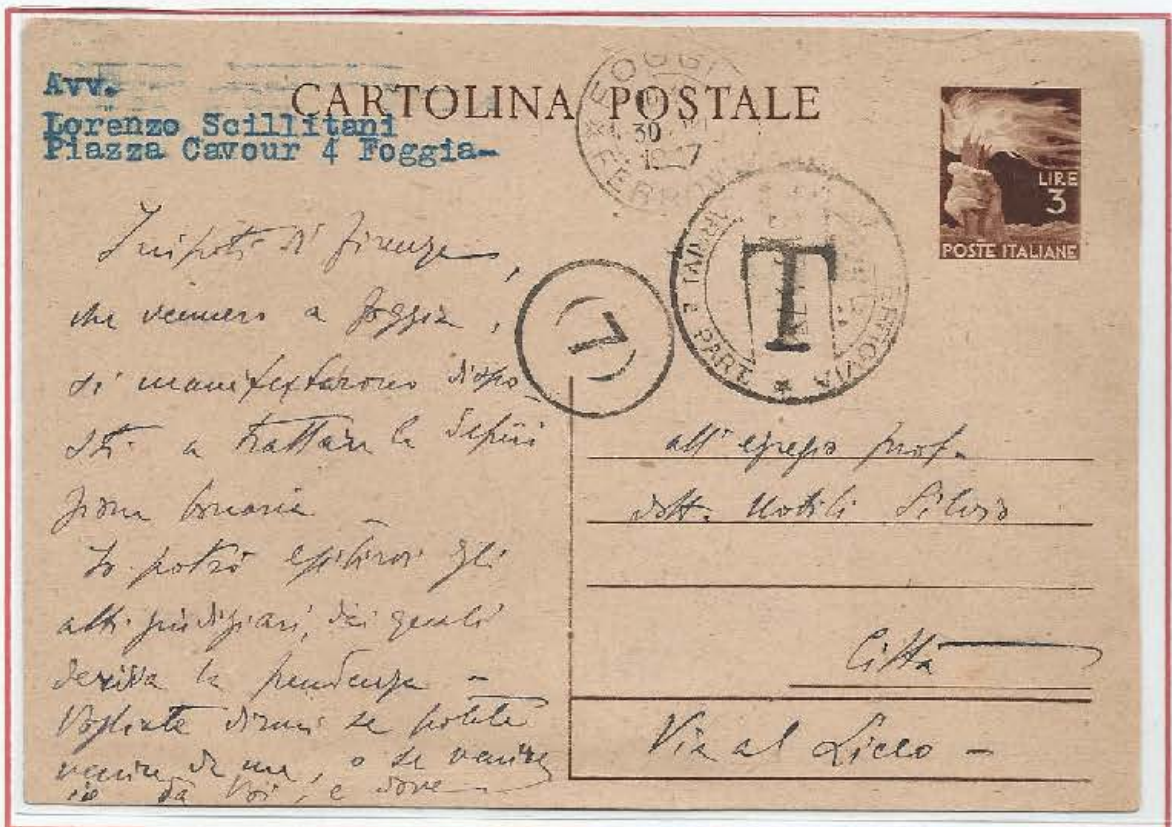 Avv.
Lorenzo Scillitani
Piazza Cavour 4 Foggia-
CARTOLINA POSTALE
FOGGI
30
1947
FERROV
LIRE
3
POSTE ITALIANE
ARRIVI E PART. * FERROVIA
T
(7)
I nipoti di Firenze,
che vennero a Foggia,
si manifestarono dispo
sti a trattare la defini
zione bonaria -
Io potrò esibirvi gli
atti giudiziari, dai quali
deriva la pendenza -
Vogliate dirmi se potete
venire da me, o se venire
io da Voi, e dove -
all'egregio prof.
dott. Nobili Silvio
Città
Via al Liceo -